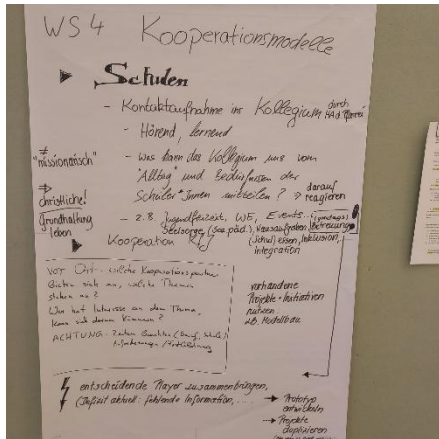 WS 4 Kooperationsmodelle
Schulen
- Kontaktaufnahme ins Kollegium durch
HA d. Pfarrei
- Hörend, lernend
≠
"missionarisch"
- Was kann das Kollegium uns vom
"Alltag" und Bedürfnissen der
Schüler*Innen mitteilen? → darauf
reagieren
⇒
christliche!
Grundhaltung
leben
- z.B. Jugendfreizeit, WE, Events...
Seelsorge, (Soz.päd.), Hausaufgaben
Betreuung
(Schul)essen, Inklusion,
Integration
Kooperation
Vor Ort - welche Kooperationspartner
bieten sich an, welche Themen
stehen an?
Wer hat Interesse an dem Thema,
kann sich darum kümmern?
ACHTUNG - Zeiten
vorhandene
Projekte + Initiativen
nutzen
z.B. Modellbau
entscheidende Player zusammenbringen,
(Defizit aktuell: fehlende Information, ...
→ Prototyp
entwickeln
→ Projekte
duplizieren